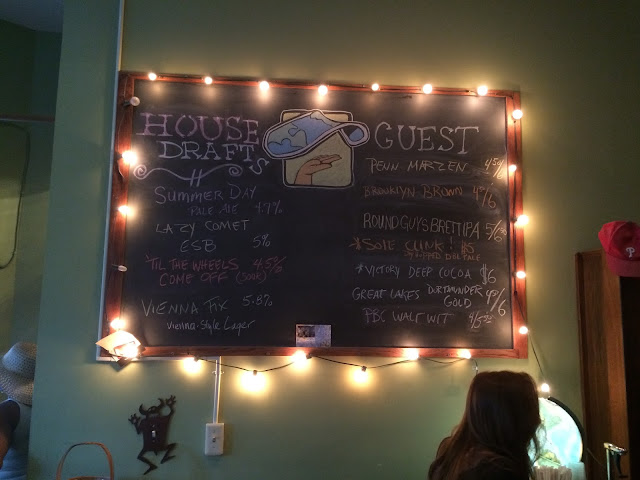 HOUSE
DRAFTS
SUMMER DAY
PALE ALE 4.7%
LAZY COMET
ESB 5%
'TIL THE WHEELS 4.5%
COME OFF (SOUR)
VIENNA FIX 5.8%
Vienna-Style Lager
GUEST
PENN MARZEN
BROOKLYN BROWN
ROUND GUYS BRETT IPA 5/6
SOLE CLINK! $5
*VICTORY DEEP COCOA $6
GREAT LAKES DORTMUNDER
GOLD
PBC WALT WIT
P